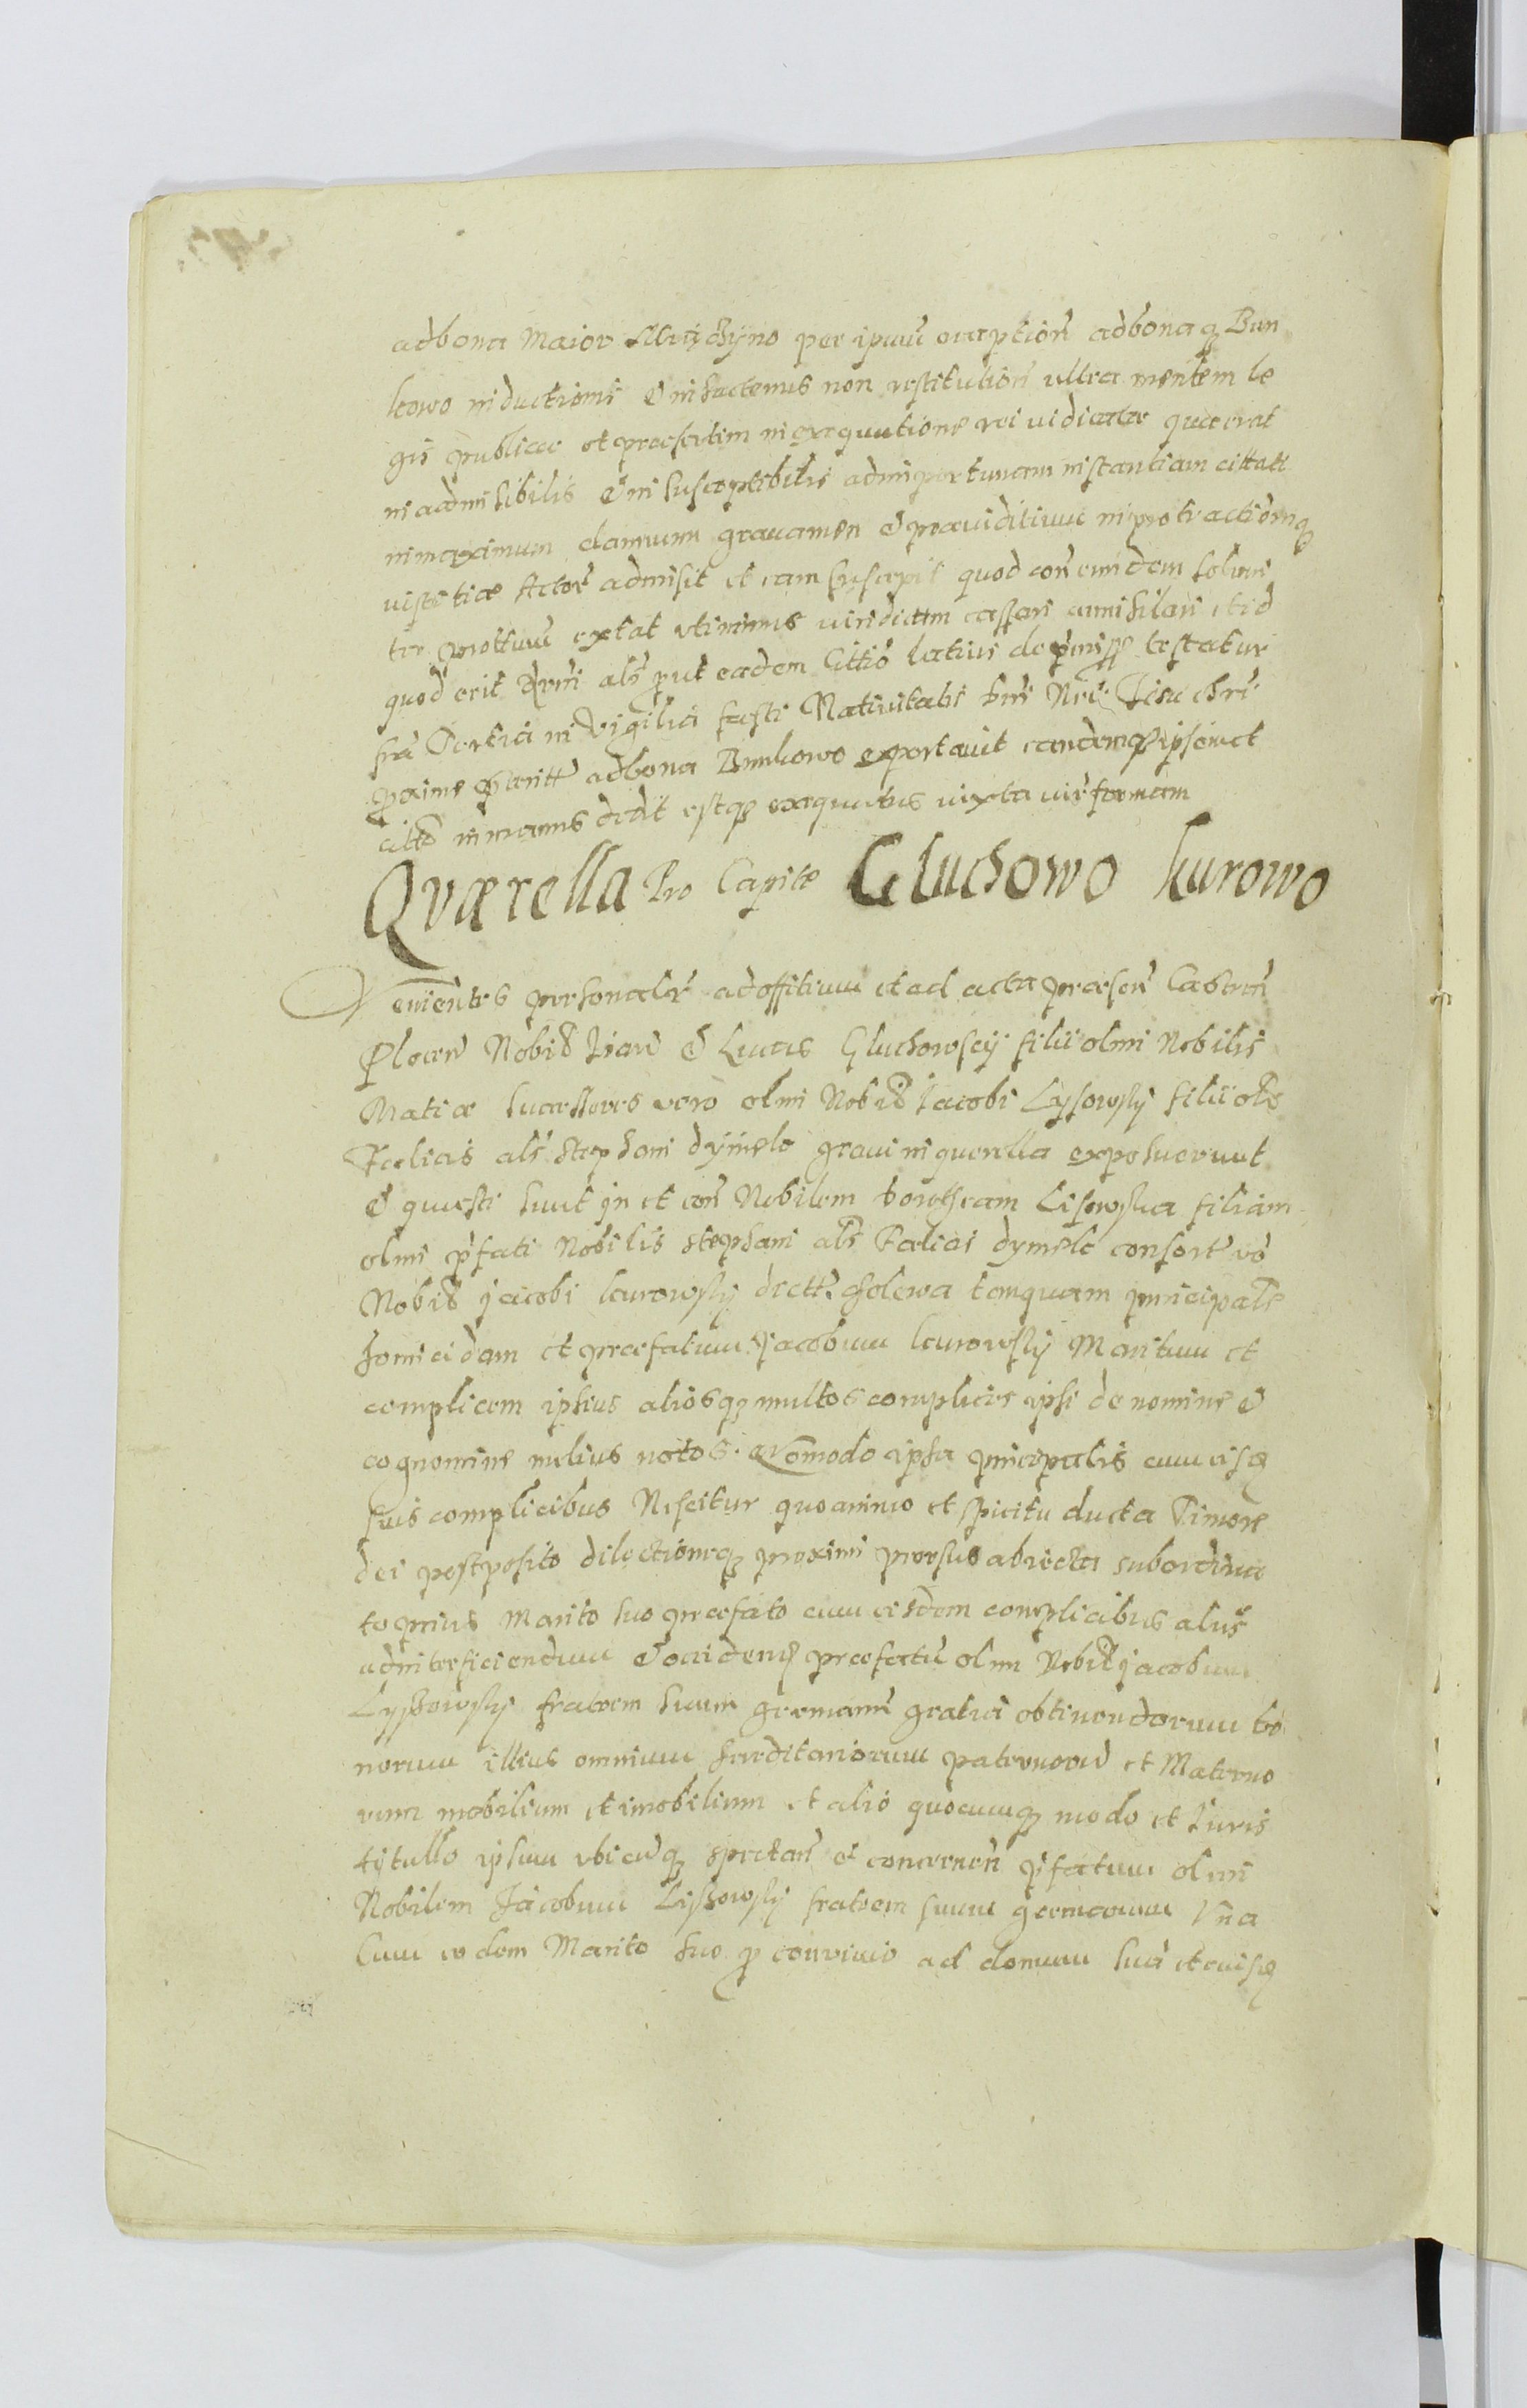 ad bona Maior per ipsum ad bonaq Bun
kowo inductionis et in hactenus non restitution ultra mentem le
gis publicae et praesertim in exequutione rei iudicatae quae erat
inadmisibilis et insusceptibilis ad inportunam instantiam cittati
in maximum damnum gravamen et praeiuditium in protractionemq
iustitiae Actor admisit et eam suscepit quod con eundem
extat cassari annihilari et id
quod erit als put eadem Cittio latius de testatur
fra Tertia in Vigilia festi Nativitatis Dni Nri Jesu chri
pxime ad bona Bunkowo exportavit eandemq
citto in manus dedit estq exequutus iuxta iur formam
Quaerella Pro Capite Gluchowo kurowo
Venientes personalr ad offitium et ad acta praesen Castren
Plocen Nobil et Lucas Gluchowscij filii olim Nobilis
Matiae successores vero olim Nobil Jacobi Lysowsky filii olim
Faelicis als Stephani dymelo gravi in querella exposuerunt
et questi sunt in et con Nobilem Dorotheam Lisowska filiam
olim pfati Nobilis Stephani als Falicis dymelo consort vo
Nobil Jacobi kurowsky dictt. cholewa tanquam principale
homicidam et praefatum Jacobum kurowsky Maritum et
complicem ipsius aliosq multos complices ipsi de nomine et
cognomine melius notos. Quomodo ipsa principalis cum eisq
suis complicibus Nescitur quo animo et spiritu ducta Timore
dei postposito dilectioneq proximi prorsus abiecta subordina
to prius Marito suo praefato cum eisdem complicibus aliis
ad interficiendum et occidend praefatu olim Nobil Jacobum
Lyssowsky fratrem suum german gratia obtinendorum bo
norum illius omnium haerditariorum paternoru et Materno
rum mobilium et imobilium et alio quocumq modo et Juris
tytullo ipsum ubicuq spectan et concernen pfatum olim
Nobilem Jacobum Lyssowsky fratrem suum germanum Una
Cum eodem Marito suo p convivio ad domum sua et eiusq